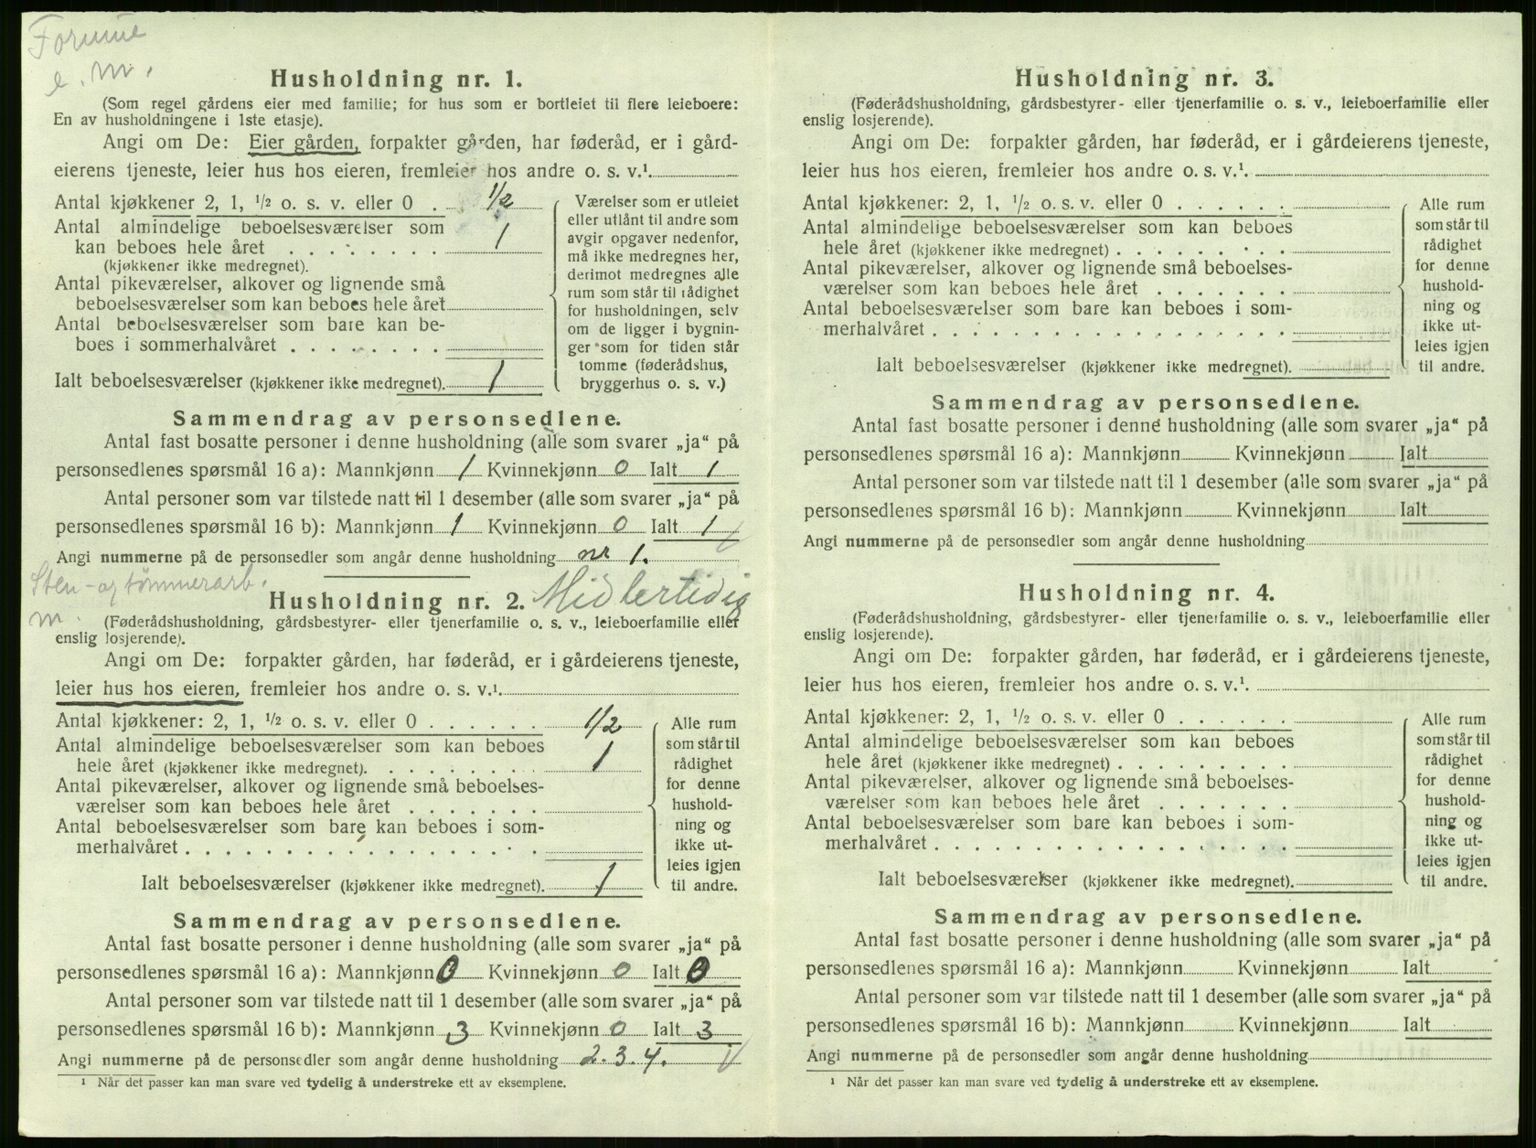 Formue
e. m.
Husholdning nr. 1.
(Som regel gårdens eier med familie; for hus som er bortleiet til flere leieboere:
En av husholdningene i 1ste etasje).
Angi om De: Eier gården, forpakter gården, har føderåd, er i gård-
eierens tjeneste, leier hus hos eieren, fremleier hos andre o. s. v.¹.
Antal kjøkkener 2, 1, ½ o. s. v. eller 0 . 1/2
Antal almindelige beboelsesværelser som
kan beboes hele året . . . . . . . . 1
(kjøkkener ikke medregnet).
Antal pikeværelser, alkover og lignende små
beboelsesværelser som kan beboes hele året
Antal beboelsesværelser som bare kan be-
boes i sommerhalvåret . . . . . . . .
Ialt beboelsesværelser (kjøkkener ikke medregnet). 1
Værelser som er utleiet
eller utlånt til andre som
avgir opgaver nedenfor,
må ikke medregnes her,
derimot medregnes alle
rum som står til rådighet
for husholdningen, selv
om de ligger i bygnin-
ger som for tiden står
tomme (føderådshus,
bryggerhus o. s. v.)
Sammendrag av personsedlene.
Antal fast bosatte personer i denne husholdning (alle som svarer „ja“ på
personsedlenes spørsmål 16 a): Mannkjønn 1 Kvinnekjønn 0 Ialt 1
Antal personer som var tilstede natt til 1 desember (alle som svarer „ja“ på
personsedlenes spørsmål 16 b): Mannkjønn 1 Kvinnekjønn 0 Ialt 1
Angi nummerne på de personsedler som angår denne husholdning nr 1.
Sten- og tømmerarb.
m.
Husholdning nr. 2. Midlertidig
(Føderådshusholdning, gårdsbestyrer- eller tjenerfamilie o. s. v., leieboerfamilie eller
enslig losjerende).
Angi om De: forpakter gården, har føderåd, er i gårdeierens tjeneste,
leier hus hos eieren, fremleier hos andre o. s. v.¹.
Antal kjøkkener: 2, 1, ½ o. s. v. eller 0 . . . . . . 1/2
Antal almindelige beboelsesværelser som kan beboes
hele året (kjøkkener ikke medregnet). . . . . . . . . 1
Antal pikeværelser, alkover og lignende små beboelses-
værelser som kan beboes hele året . . . . . . .
Antal beboelsesværelser som bare kan beboes i som-
merhalvåret . . . . . . . . . . . . . . . . .
Ialt beboelsesværelser (kjøkkener ikke medregnet). 1
Alle rum
som står til
rådighet
for denne
hushold-
ning og
ikke ut-
leies igjen
til andre.
Sammendrag av personsedlene.
Antal fast bosatte personer i denne husholdning (alle som svarer „ja“ på
personsedlenes spørsmål 16 a): Mannkjønn 0 Kvinnekjønn 0 Ialt 0
Antal personer som var tilstede natt til 1 desember (alle som svarer „ja“ på
personsedlenes spørsmål 16 b): Mannkjønn 3 Kvinnekjønn 0 Ialt 3
Angi nummerne på de personsedler som angår denne husholdning 2. 3. 4.
¹ Når det passer kan man svare ved tydelig å understreke ett av eksemplene.
Husholdning nr. 3.
(Føderådshusholdning, gårdsbestyrer- eller tjenerfamilie o. s. v., leieboerfamilie eller
enslig losjerende).
Angi om De: forpakter gården, har føderåd, er i gårdeierens tjeneste,
leier hus hos eieren, fremleier hos andre o. s. v.¹.
Antal kjøkkener: 2, 1, ½ o. s. v. eller 0 . . . . . .
Antal almindelige beboelsesværelser som kan beboes
hele året (kjøkkener ikke medregnet) . . . . . . . . .
Antal pikeværelser, alkover og lignende små beboelses-
værelser som kan beboes hele året . . . . . . .
Antal beboelsesværelser som bare kan beboes i som-
merhalvåret . . . . . . . . . . . . . . . . .
Ialt beboelsesværelser (kjøkkener ikke medregnet).
Alle rum
som står til
rådighet
for denne
hushold-
ning og
ikke ut-
leies igjen
til andre.
Sammendrag av personsedlene.
Antal fast bosatte personer i denne husholdning (alle som svarer „ja“ på
personsedlenes spørsmål 16 a): Mannkjønn Kvinnekjønn Ialt
Antal personer som var tilstede natt til 1 desember (alle som svarer „ja“ på
personsedlenes spørsmål 16 b): Mannkjønn Kvinnekjønn Ialt
Angi nummerne på de personsedler som angår denne husholdning
Husholdning nr. 4.
(Føderådshusholdning, gårdsbestyrer- eller tjenerfamilie o. s. v., leieboerfamilie eller
enslig losjerende).
Angi om De: forpakter gården, har føderåd, er i gårdeierens tjeneste,
leier hus hos eieren, fremleier hos andre o. s. v.¹.
Antal kjøkkener: 2, 1, ½ o. s. v. eller 0 . . . . . .
Antal almindelige beboelsesværelser som kan beboes
hele året (kjøkkener ikke medregnet) . . . . . . . . .
Antal pikeværelser, alkover og lignende små beboelses-
værelser som kan beboes hele året . . . . . . .
Antal beboelsesværelser som bare kan beboes i som-
merhalvåret . . . . . . . . . . . . . . . . .
Ialt beboelsesværelser (kjøkkener ikke medregnet).
Alle rum
som står til
rådighet
for denne
hushold-
ning og
ikke ut-
leies igjen
til andre.
Sammendrag av personsedlene.
Antal fast bosatte personer i denne husholdning (alle som svarer „ja“ på
personsedlenes spørsmål 16 a): Mannkjønn Kvinnekjønn Ialt
Antal personer som var tilstede natt til 1 desember (alle som svarer „ja“ på
personsedlenes spørsmål 16 b): Mannkjønn Kvinnekjønn Ialt
Angi nummerne på de personsedler som angår denne husholdning
¹ Når det passer kan man svare ved tydelig å understreke ett av eksemplene.